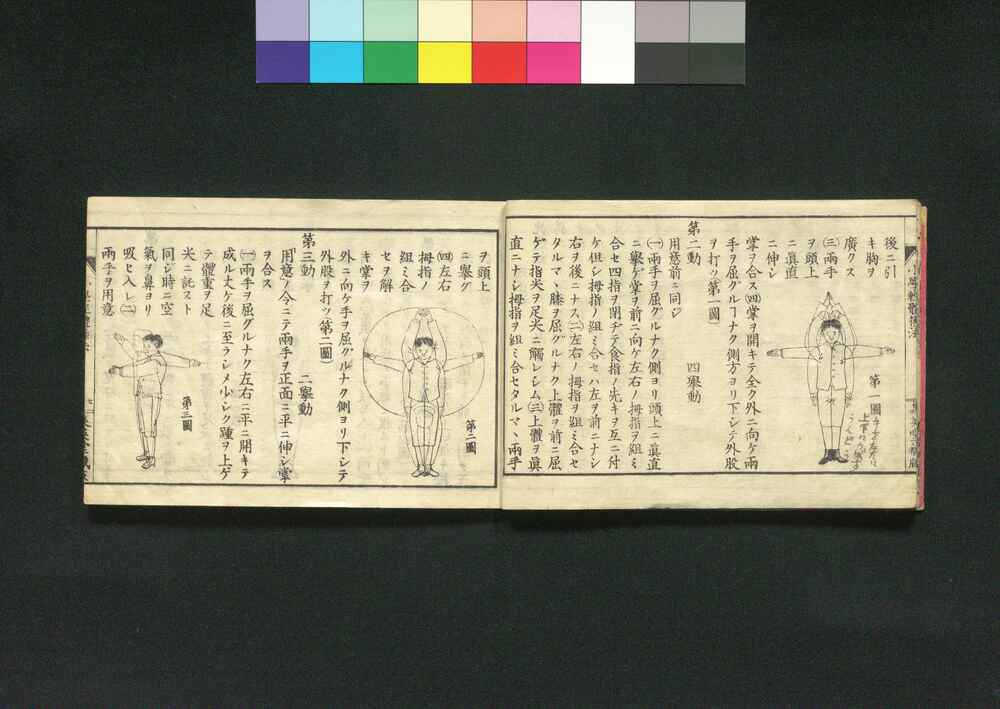 後ニ引
キ胸ヲ
廣クス
㈢兩手
ヲ頭上
ニ眞直
ニ伸シ
掌ヲ合ス㈣掌ヲ開キテ全ク外ニ向ケ兩
手ヲ屈グルヿナク側方ヨリ下シテ外股
ヲ打ツ(第一圖)
第一圖
第二動 四擧動
用意前ニ同ジ
㈠兩手ヲ屈グルナク側ヨリ頭上ニ眞直
ニ擧ゲ掌ヲ前ニ向ケ左右ノ拇指ヲ組ミ
合セ四指ヲ閉ヂテ食指ノ先キヲ互ニ付
ケ但シ拇指ノ組ミ合セハ左ヲ前ニナシ
右ヲ後ニナス㈡左右ノ拇指ヲ組ミ合セ
タルマヽ膝ヲ屈グルナク上體ヲ前ニ屈
ゲテ指尖ヲ足尖ニ觸レシム㈢上體ヲ眞
直ニナシ拇指ヲ組ミ合セタルマヽ兩手
ヲ頭上
ニ擧グ
㈣左右
拇指ノ
組ミ合
セヲ解
キ掌ヲ
外ニ向ケ手ヲ屈グルナク側ヨリ下シテ
外股ヲ打ツ(第二圖)
第二圖
第三動 二擧動
「用意」ノ令ニテ兩手ヲ正面ニ平ニ伸シ掌
ヲ合ス
㈠兩手ヲ屈グルナク左右ニ平ニ開キテ
成ル丈ケ後ニ至ラシメ少シク踵ヲ上ゲ
テ體重ヲ足
尖ニ託スト
同ジ時ニ空
氣ヲ鼻ヨリ
吸ヒ入レ㈡
兩手ヲ用意
第三圖